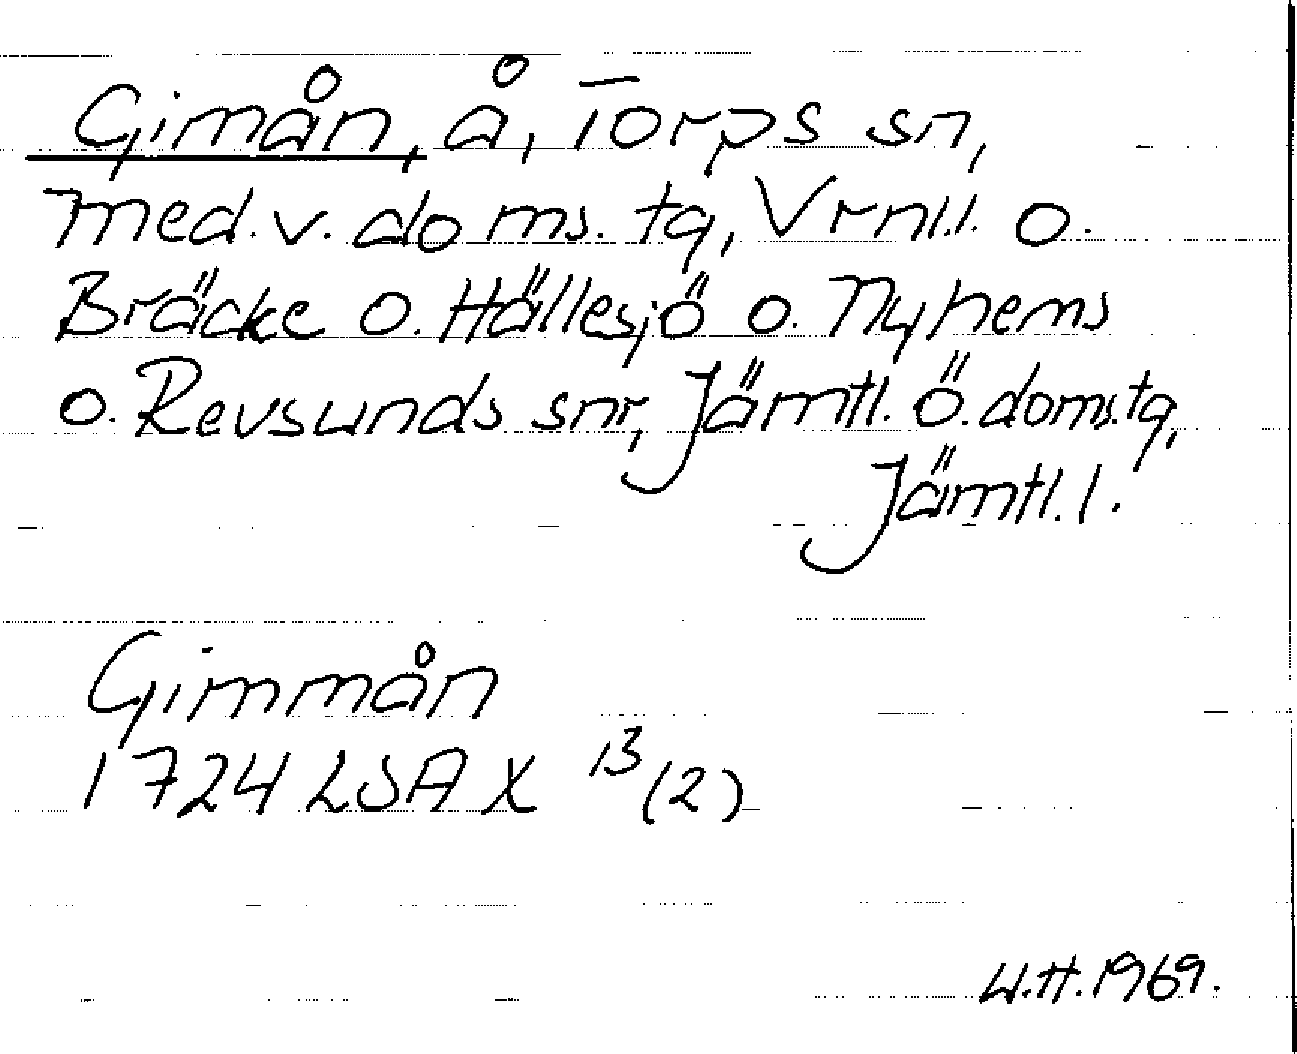 Gimån, å, Torps sn,
med. v. doms. tg, Vrnl.l. o.
Bräcke o. Hällesjö o. Nyhems
o. Revsunds snr, Jämtl. ö. doms.tg,
Jämtl. l.
Gimmån
1724 LSA X 13 (2)
U.H. 1969.